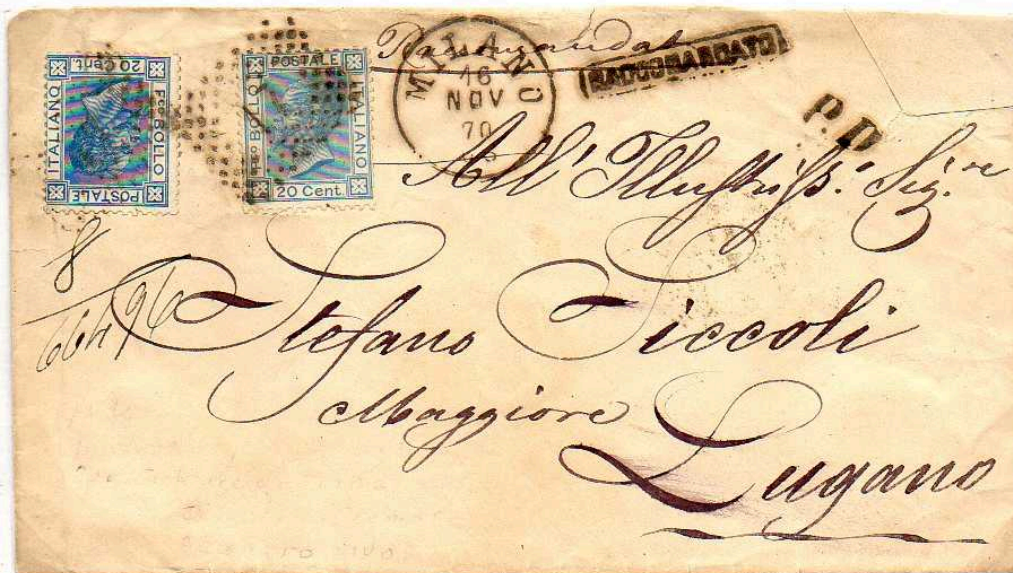 POSTALE
ITALIANO
FCO BOLLO
20 Cent
POSTALE
ITALIANO
FCO BOLLO
20 Cent
MILANO
16
NOV
70
RACCOMANDATO
P.D
All' Illustriss.º Sig.re
Stefano
Maggiore
Lugano
8